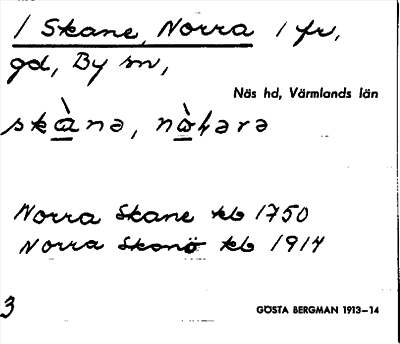 / Skane, Norra / fr,
gd, By sn,
Näs hd, Värmlands län
skànə, nòhərə
Norra Skane kb 1750
Norra Skonö kb 1914
3
GÖSTA BERGMAN 1913–14